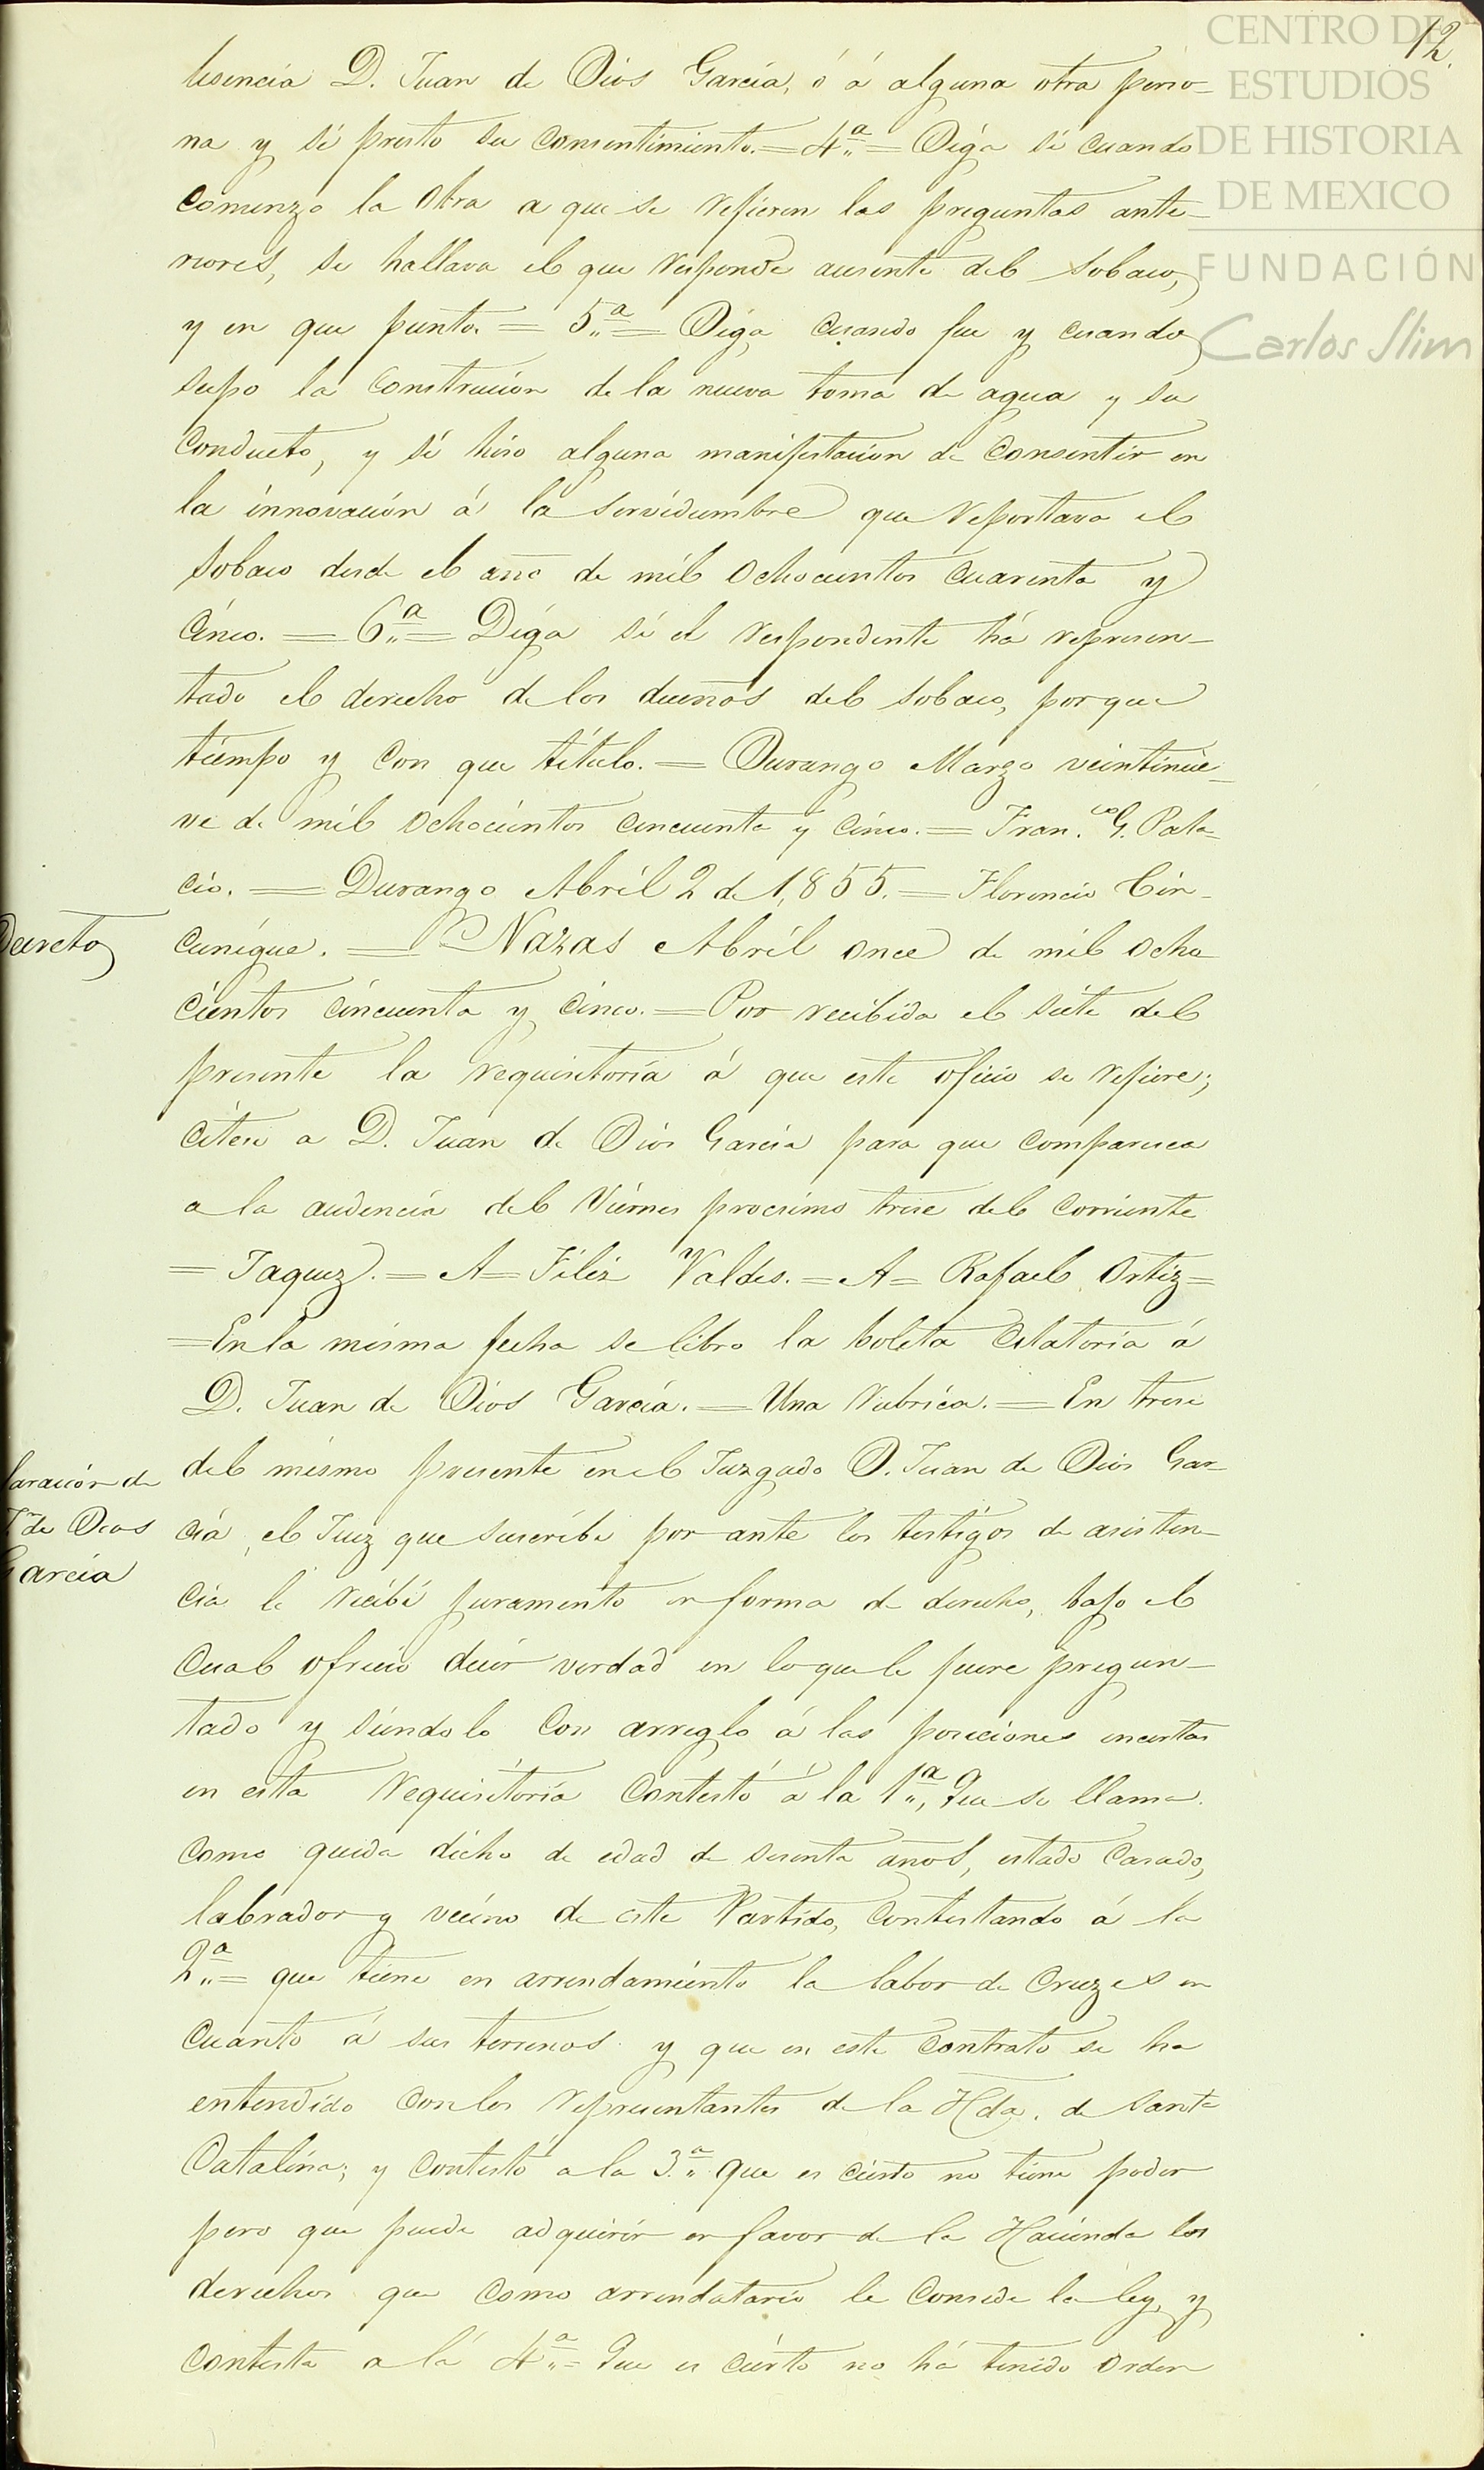 12.
CENTRO DE
ESTUDIOS
DE HISTORIA
DE MEXICO
FUNDACIÓN
Carlos Slim
lisencia D. Juan de Dios García, ó á alguna otra perso-
na y sí presto su consentimiento.=4.ª= Diga sí cuando
comenzo la obra a que se refieren las preguntas ante-
riores, se hallava el que responde ausente del Sobaco,
y en que punto. = 5.ª = Diga cuando fue y cuando
supo la construcion de la nueva toma de agua y su
conducto, y sí hiso alguna manifestacion de consentir en
la innovación á la servidumbre que reportava el
Sobaco desde el año de mil ochocientos cuarenta y
cinco. = 6.ª = Diga sí el respondente há represen-
tado el derecho de los dueños del Sobaco, porque
tiempo y con que título. = Durango Marzo veintinue-
ve de mil ochocientos cincuenta y cinco. = Fran.co G. Pala-
cio. = Durango Abril 2 de 1,855. = Florencio Cin-
Decreto
cunigue. = Nazas Abril once de mil ocho
cientos cincuenta y cinco. = Por recibida el siete del
presente la requisitoría á que este oficio se refiere;
citese a D. Juan de Dios García para que comparesca
a la audencia del Viernes procsimo trese del corriente
= Jaquez. = A = Feliz Valdes. = A = Rafael Ortiz =
= En la misma fecha se libro la boleta citatoria á
D. Juan de Dios García. = Una rubrica. = En trese
laracion de
J.n de Dios
García
del mismo presente en el Juzgado D. Juan de Dios Gar-
cía, el Juez que suscribe por ante los testigos de asisten-
cia le recibí juramento en forma de derecho, bajo el
cual ofrecio decir verdad en lo que le fuere pregun-
tado y siéndolo con arreglo á las posiciones incertas
en esta requisitoría contestó á la 1.ª, Que se llama
como queda dicho de edad de sesenta años, estado casado,
labrador y vecino de este Partido, contestando á la
2.ª = que tiene en arrendamiento la labor de Cruzes en
cuanto á sus terrenos y que en este contrato se ha
entendido con los representantes de la Hda. de Santa
Catalina; y contestó a la 3.ª que es cierto no tiene poder
pero que puede adquirir en favor de la Hacienda los
derechos que como arrendatario le consede la ley, y
contesta a la 4.ª = Que es cierto no há tenido orden